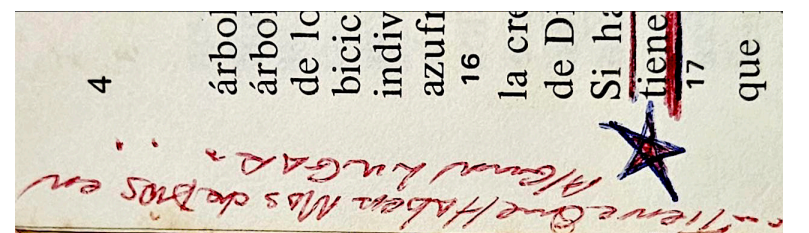 4
árbol
árbol
de lo
bicic
indiv
azufr
16
la cre
de Di
Si ha
tiene
17
que
Tiene Que Haber Mas de Dios en
Algun Lugar.